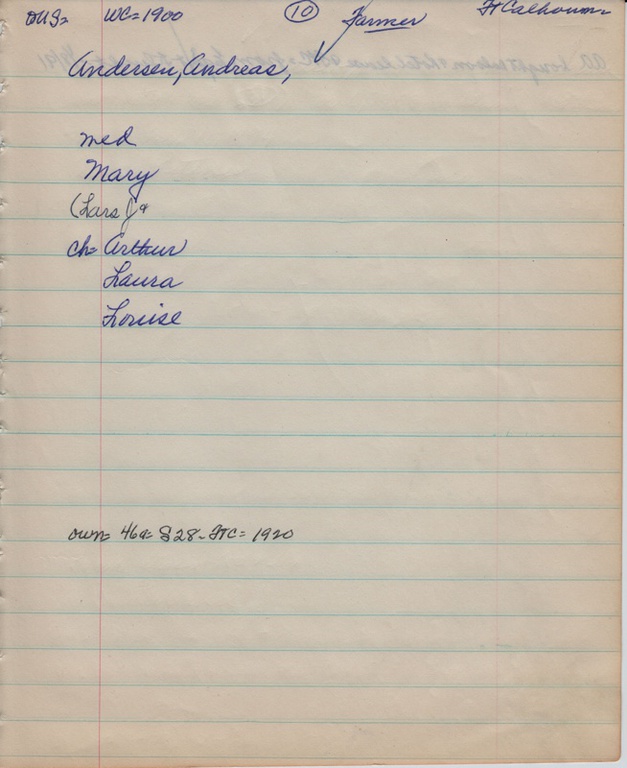 WC=1900 10 Farmer Ft Calhoun
Andersen, Andreas,
med
Mary
(Lars)
ch= Arthur
Laura
Louise
own= 46a= S28- FTC= 1920